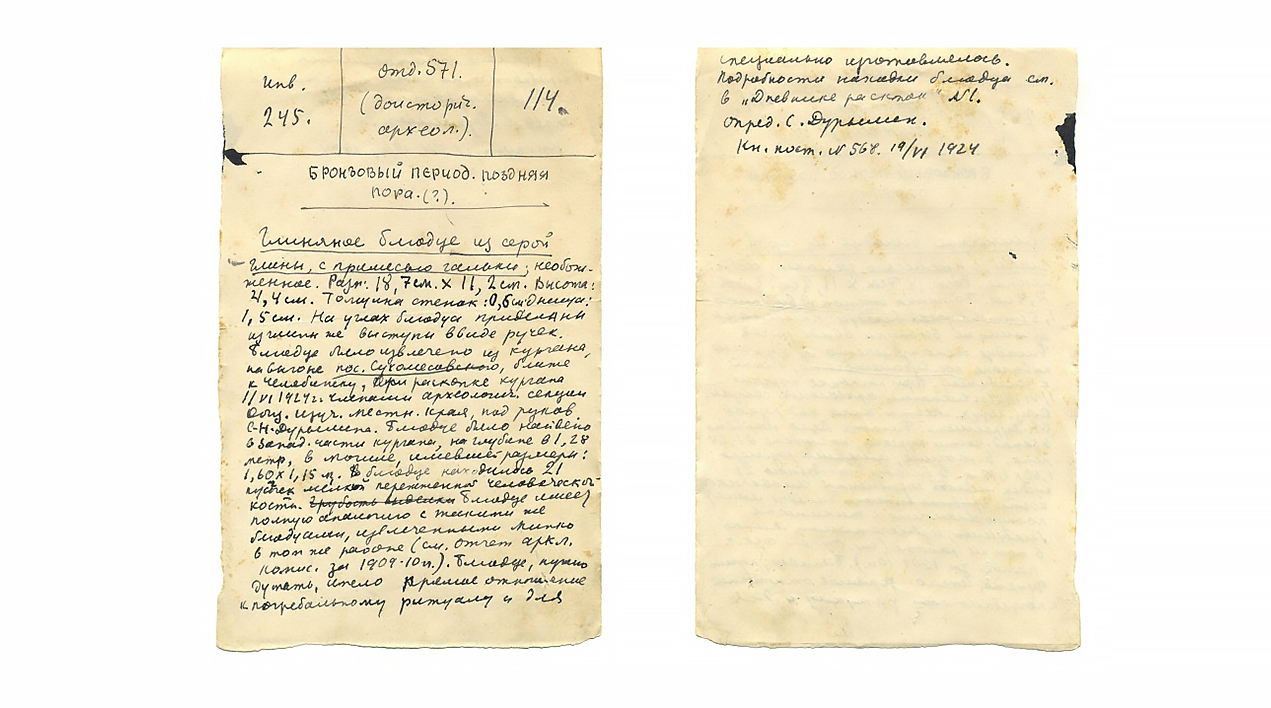 инв.
245.
отд. 571.
(доисторич.
археол.).
114.
БРОНЗОВЫЙ ПЕРИОД. ПОЗДНЯЯ
ПОРА. (?).
Глиняное блюдце из серой
глины, с примесью гальки; необож-
женное. Разм: 18,7см. х 11,2см. Высота:
4,4см. Толщина стенок: 0,6см днища:
1,5см. На углах блюдца приделаны
из глины же выступы в виде ручек.
Блюдце было извлечено из кургана,
на выгоне пос. Сухомесовского, ближе
к Челябинску, при раскопке кургана
1/VI 1924 г. членами археологич. секции
Общ. изуч. местн. края, под руков.
С.Н. Дурылина. Блюдце было найдено
в запад. части кургана, на глубине в 1,28
метр, в могиле, имевшей размеры:
1,60 х 1,15 м. В блюдце находилось 21
кусочек мелкой пережженной человеческой
кости. Грубость выделки Блюдце имеет
полную аналогию с такими же
блюдцами, извлеченными Минко
в том же районе (см. отчет архл.
комис. за 1909-10 гг.). Блюдце, нужно
думать, имело прямое отношение
к погребальному ритуалу и для
специально изготовлялось.
Подробности находки блюдца см.
в „Дневнике раскоп" №1.
Опред. С. Дурылин.
Кн. пост. № 568. 19/VI 1924